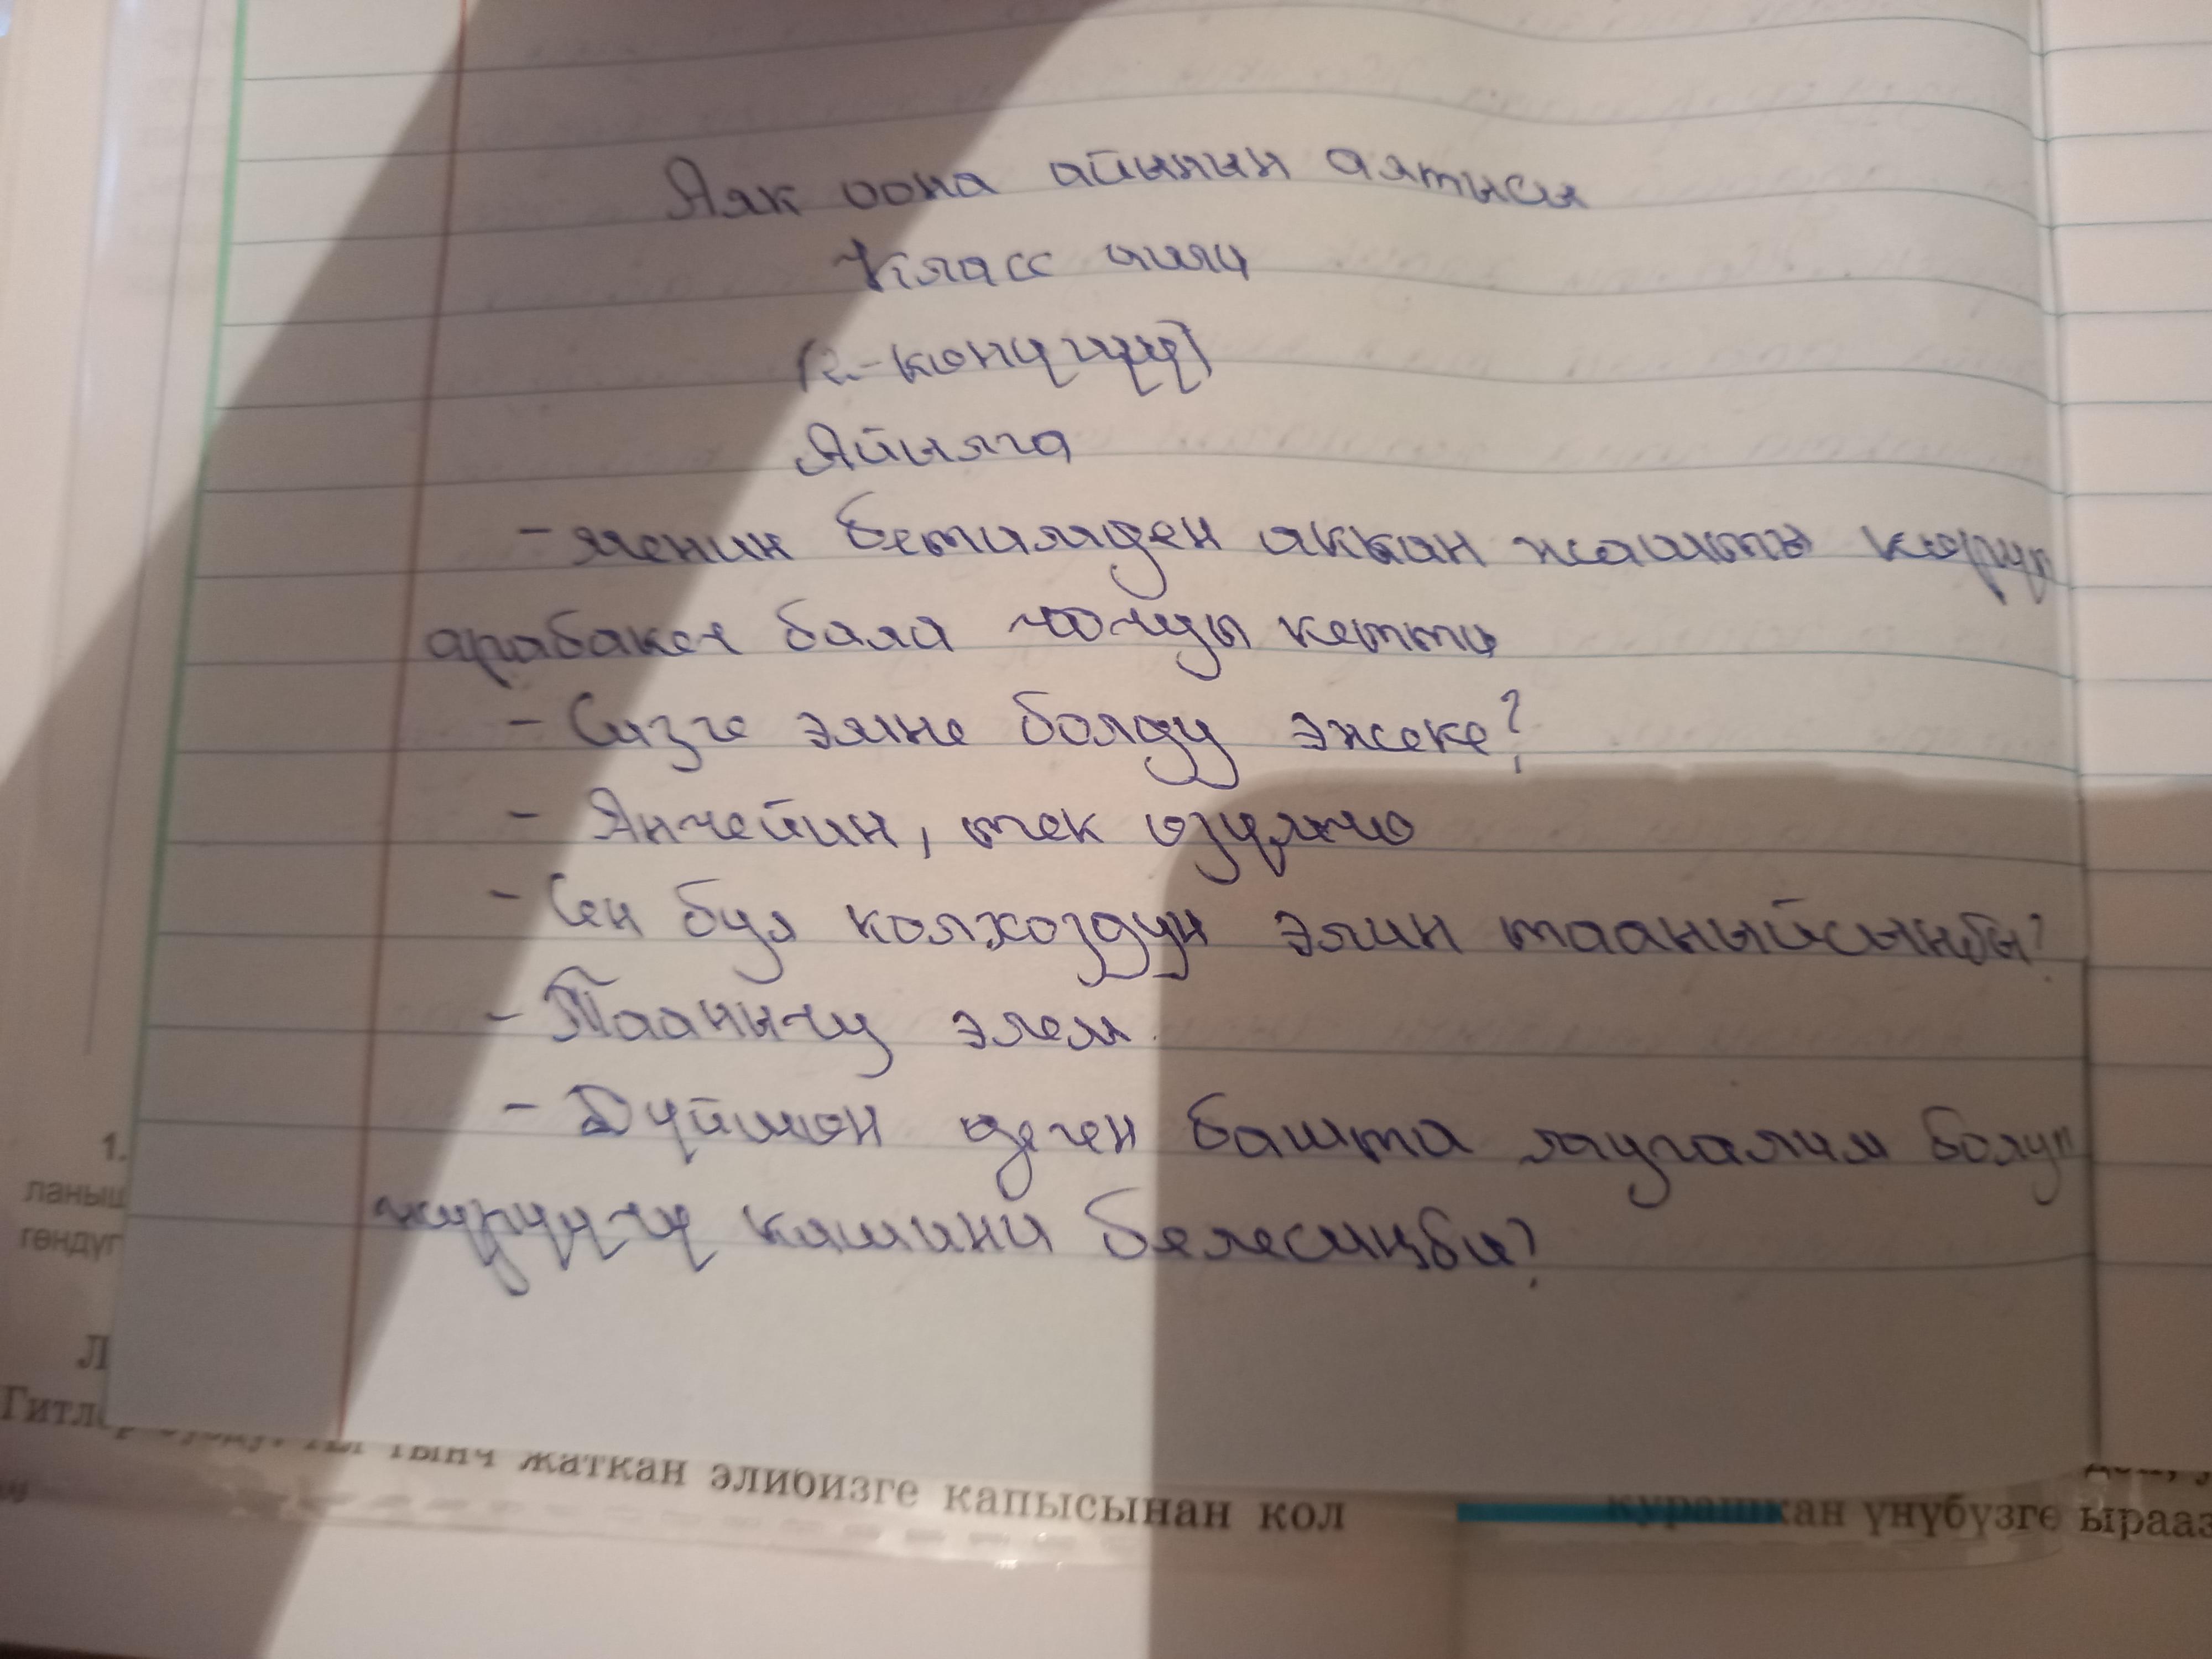 Аяк оона айынын алтысы
Класс иши
(2-көнүгүү)
Айылга
- менин бетимден аккан жашты көрүп
арабакеч бала чочуды кетти
- Сизге эмне болду эжеке?
- Анчейин, тек өзүмчө
- Сен бул колхоздун элин тааныйсынбы?
- Таанычу элем.
- Дүйшөн деген башта мугалим болуп
жүрүүчү кишини билесиңби?
1.
ланыш
гөндүг
Л
Гитлер
тынч жаткан элибизге капысынан кол
курашкан үнүбүзгө ырааз